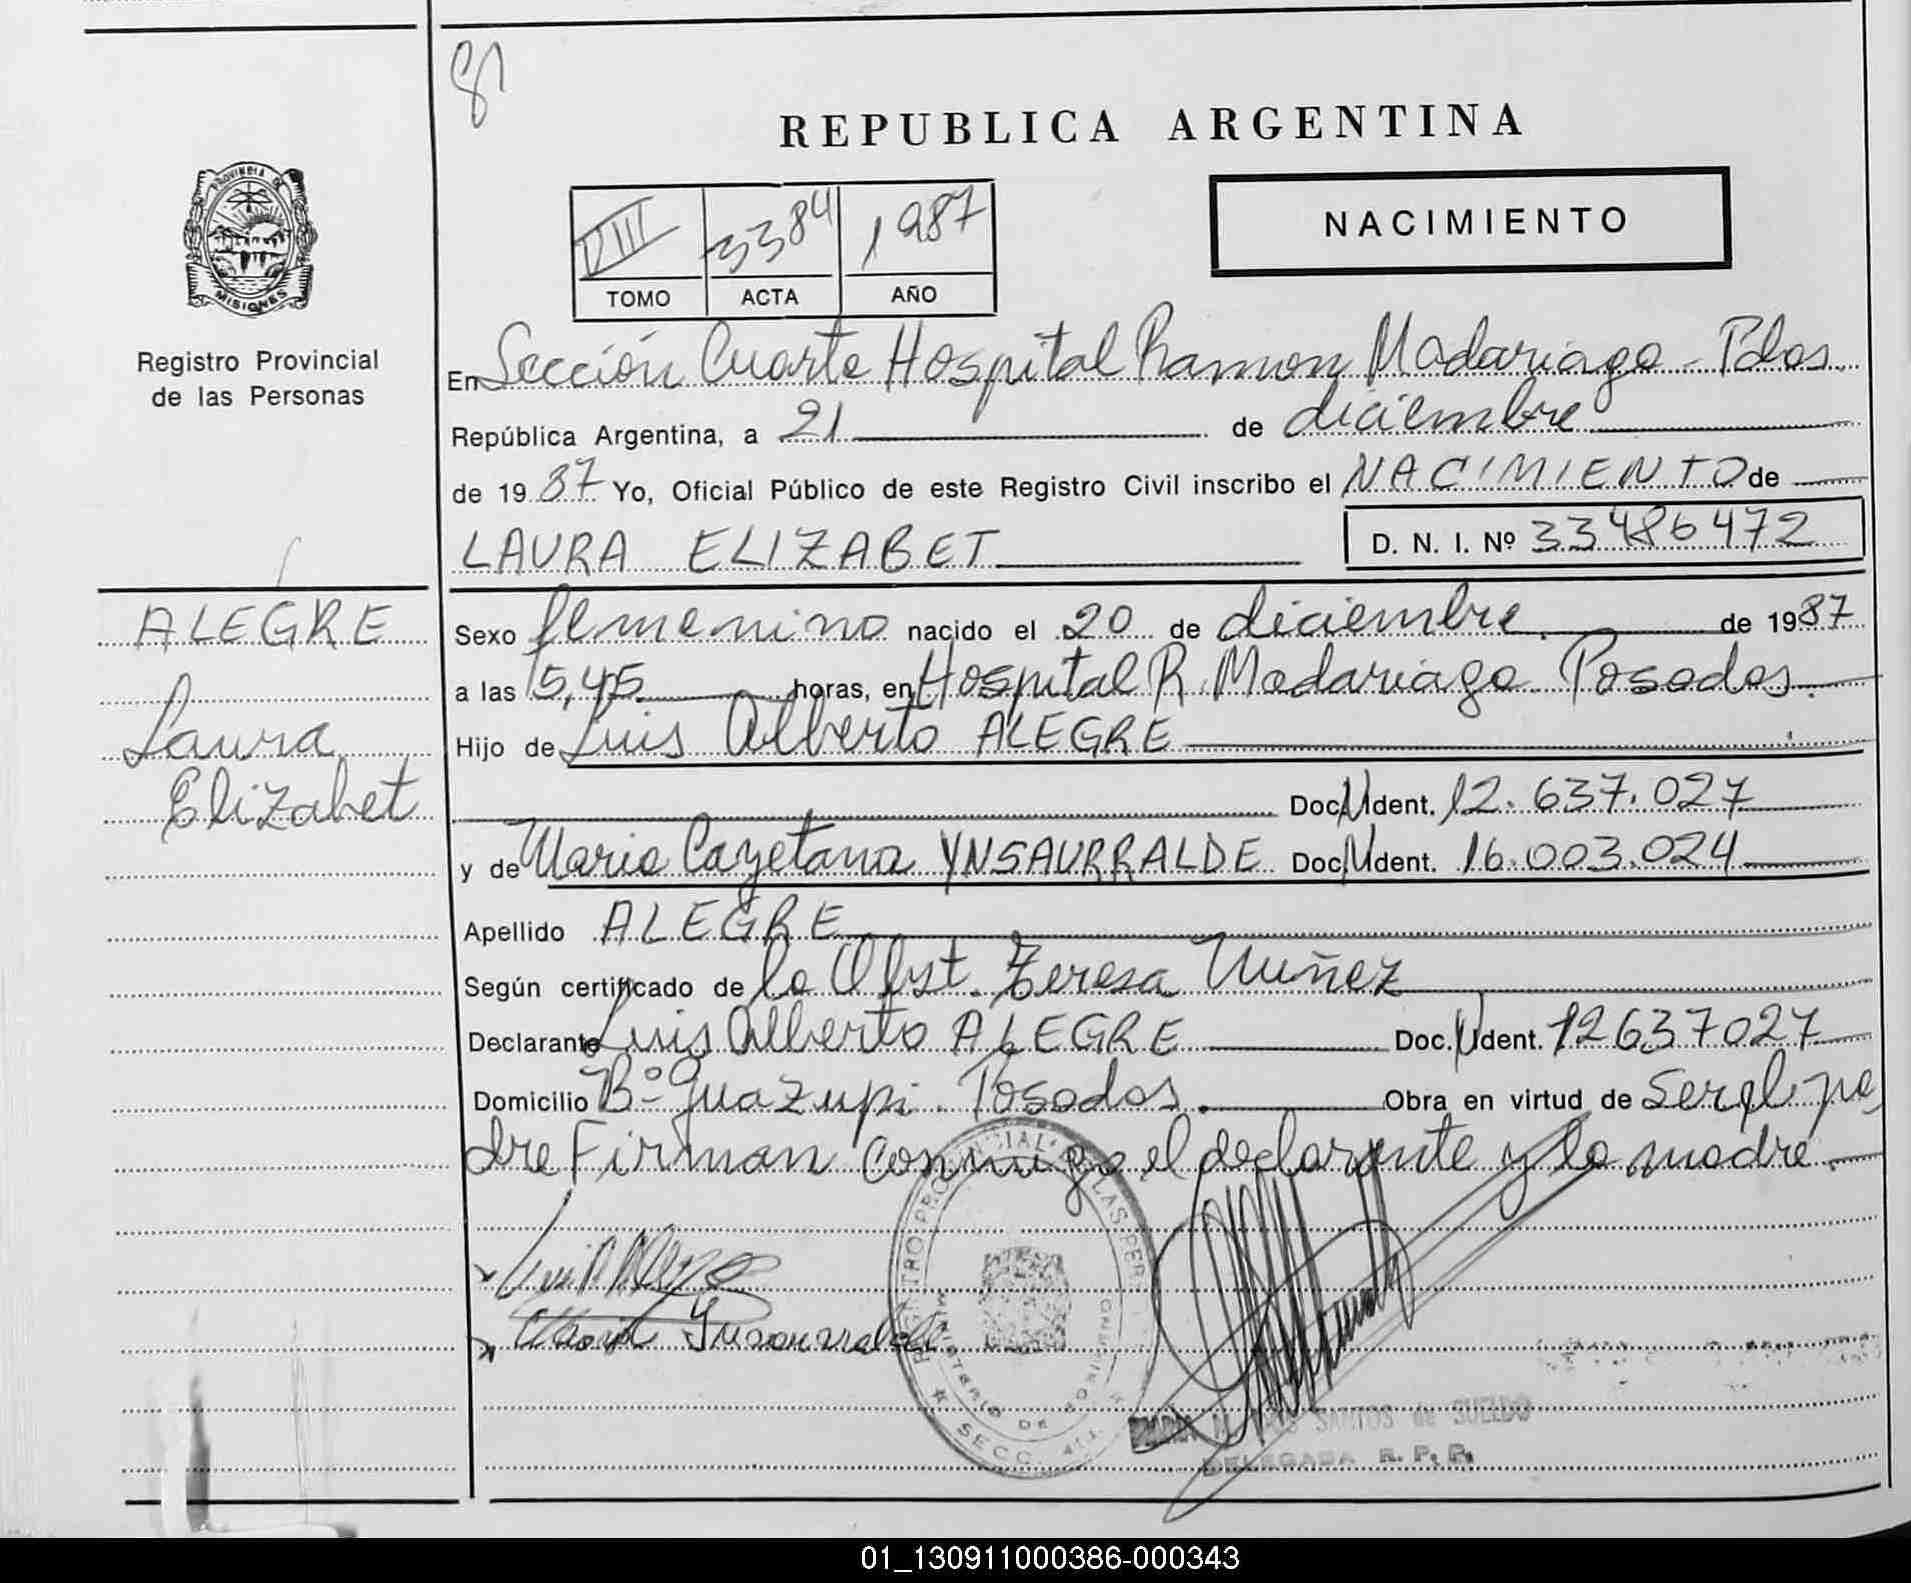 81
REPUBLICA ARGENTINA
PROVINCIA DE
MISIONES
VIII 3384 1987
TOMO ACTA AÑO
NACIMIENTO
Registro Provincial
de las Personas
En Sección Cuarta Hospital Ramon Madariaga - Pdas.
República Argentina, a 21 de diciembre
de 19 87 Yo, Oficial Público de este Registro Civil inscribo el NACIMIENTO de
LAURA ELIZABET D. N. I. Nº 33486472
ALEGRE
Laura
Elizabet
Sexo femenino nacido el 20 de diciembre de 1987
a las 15,45 horas, en Hospital R. Madariaga Posadas.
Hijo de Luis Alberto ALEGRE
Doc. Ident. 12.637.027
y de Maria Cayetana YNSAURRALDE Doc. Ident. 16.003.024
Apellido ALEGRE
Según certificado de la Obst. Teresa Nuñez
Declarante Luis Alberto ALEGRE Doc. Ident. 12637027
Domicilio Bº Guazupi. Posadas. Obra en virtud de Ser el pa
dre Firman conmigo el declarante y la madre.
Maria Ynsaurralde
REGISTRO PROVINCIAL DE LAS PERS
MINISTERIO DE GOBIERNO
SECC. 4ta.
SANTOS de SUELDO
DELEGADA R. P. P.
01_130911000386-000343